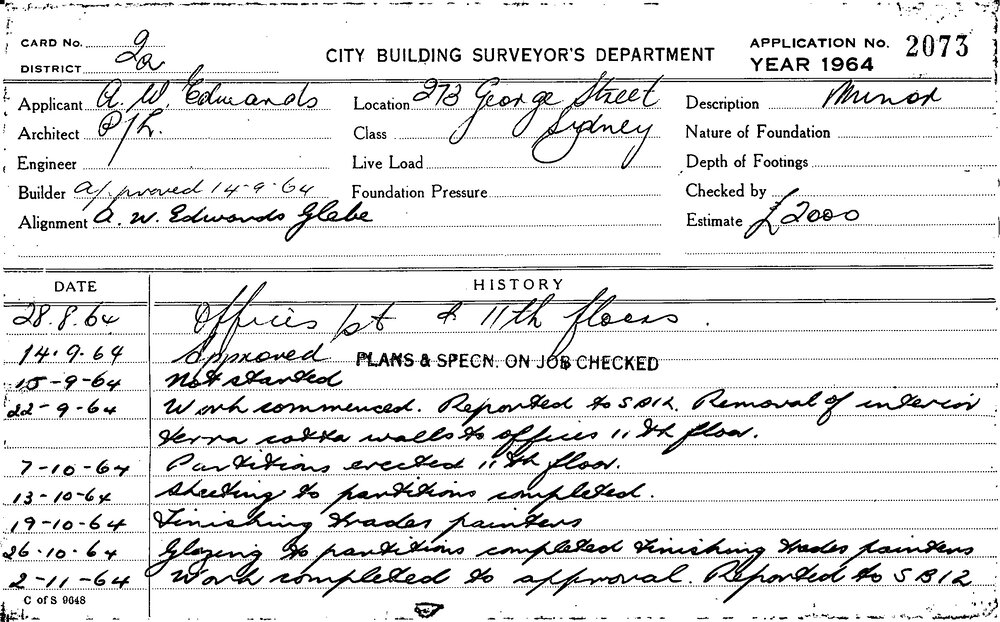 CARD No. 2a
DISTRICT
CITY BUILDING SURVEYOR'S DEPARTMENT
APPLICATION No. 2073
YEAR 1964
Applicant A. W. Edwards
Location 273 George Street
Sydney
Description Minor
Architect
Class
Nature of Foundation
Engineer
Live Load
Depth of Footings
Builder approved 14-9-64
Foundation Pressure
Checked by
Alignment A. W. Edwards Glebe
Estimate £2000
DATE HISTORY
28.8.64 Offices 1st & 11th floors.
14.9.64 Approved PLANS & SPECN. ON JOB CHECKED
15-9-64 Not started
22-9-64 Work commenced. Reported to SB12. Removal of interior
terra cotta walls to offices 11th floor.
7-10-64 Partitions erected 11th floor.
13-10-64 Sheeting to partitions completed.
19-10-64 Finishing trades painters
26-10-64 Glazing to partitions completed Finishing trades painters
2-11-64 Work completed to approval. Reported to SB12
C of S 9648